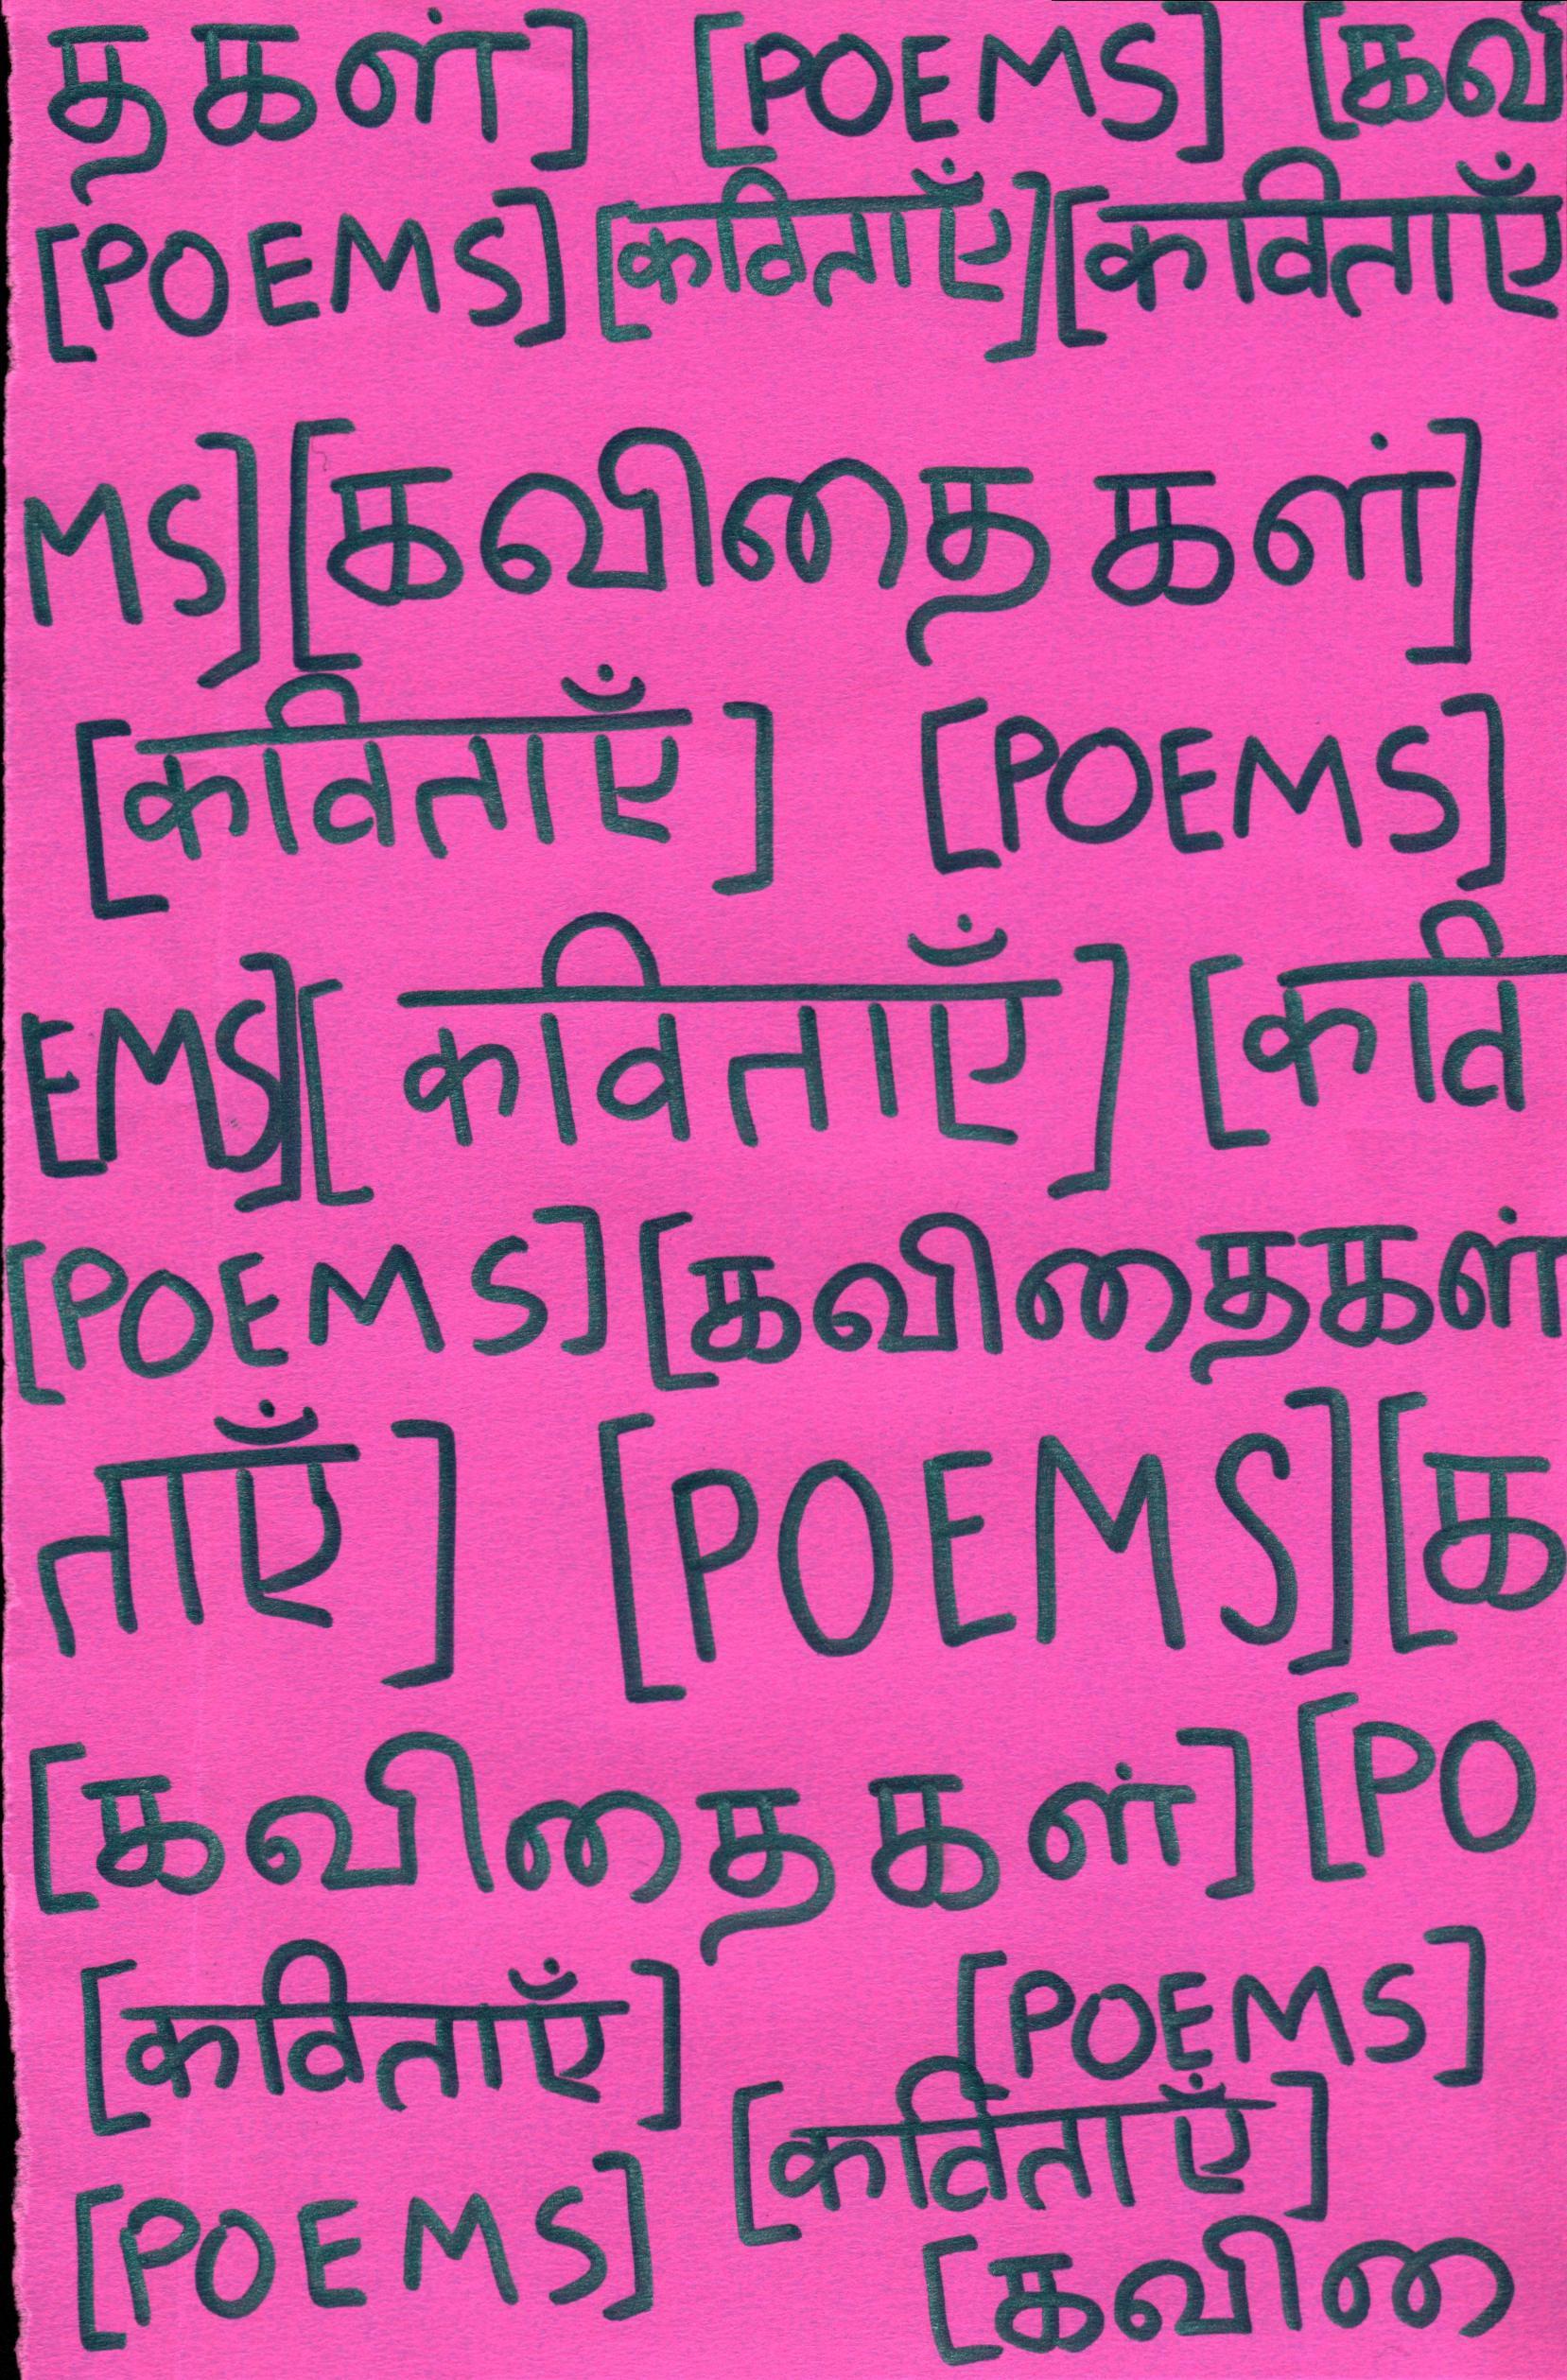 தகள்] [POEMS] [கவி
[POEMS] [कविताएँ] [कविताएँ
MS] [கவிதைகள்]
[कविताएँ] [POEMS]
EMS] [कविताएँ] [कवि
[POEMS] [கவிதைகள்
ताएँ] [POEMS] [க
[கவிதைகள்] [PO
[कविताएँ] [POEMS]
[कविताएँ]
[POEMS]
[கவிதை